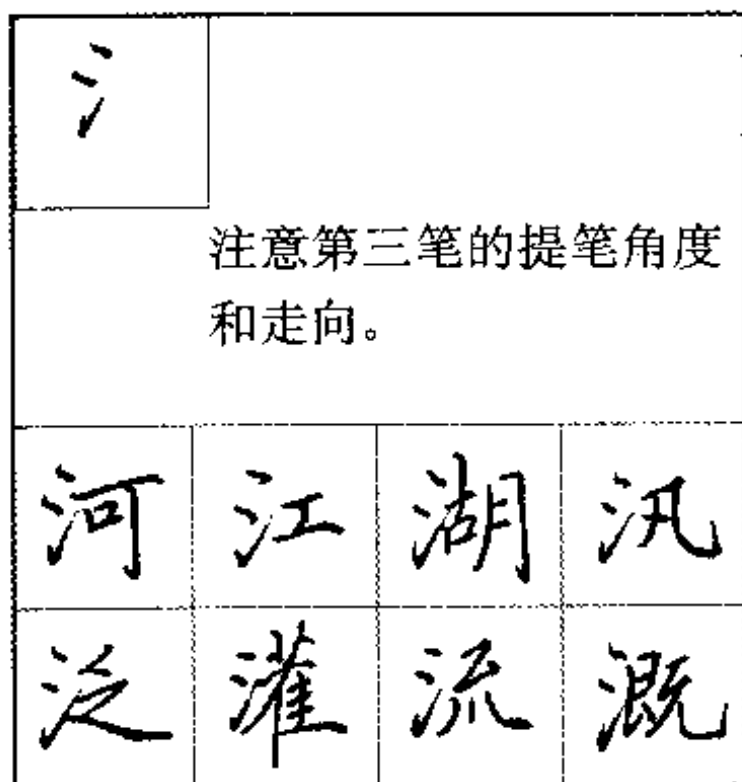 氵
注意第三笔的提笔角度
和走向。
河 江 湖 汛
泛 灌 流 溉